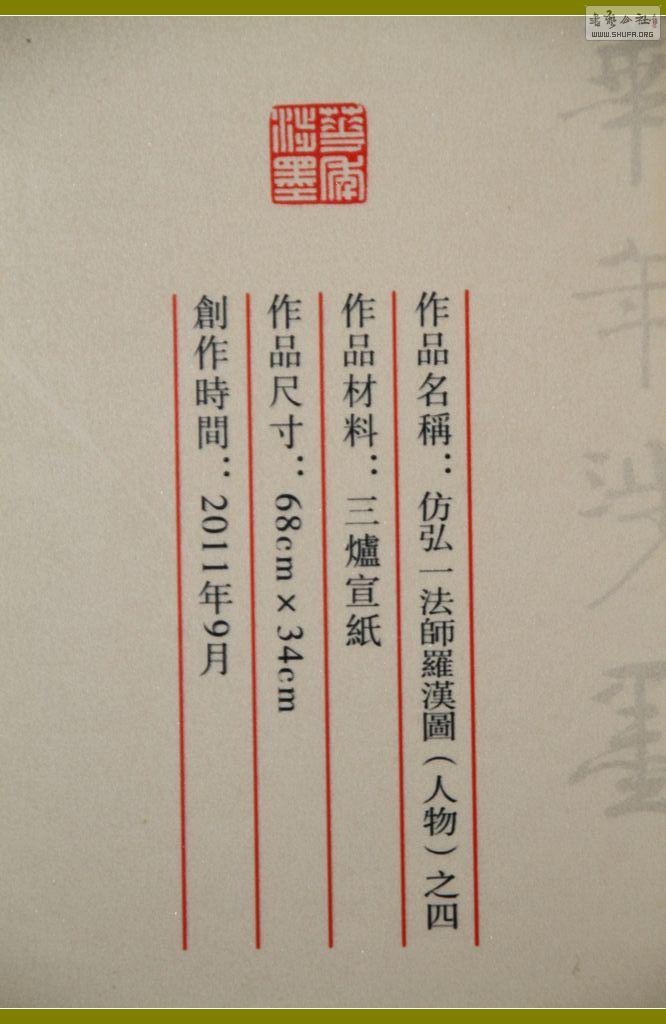 書艺公社
WWW.SHUFA.ORG
華年涉墨
作品名稱：仿弘一法師羅漢圖（人物）之四
作品材料：三爐宣紙
作品尺寸：68cm×34cm
創作時間：2011年9月
華年涉墨